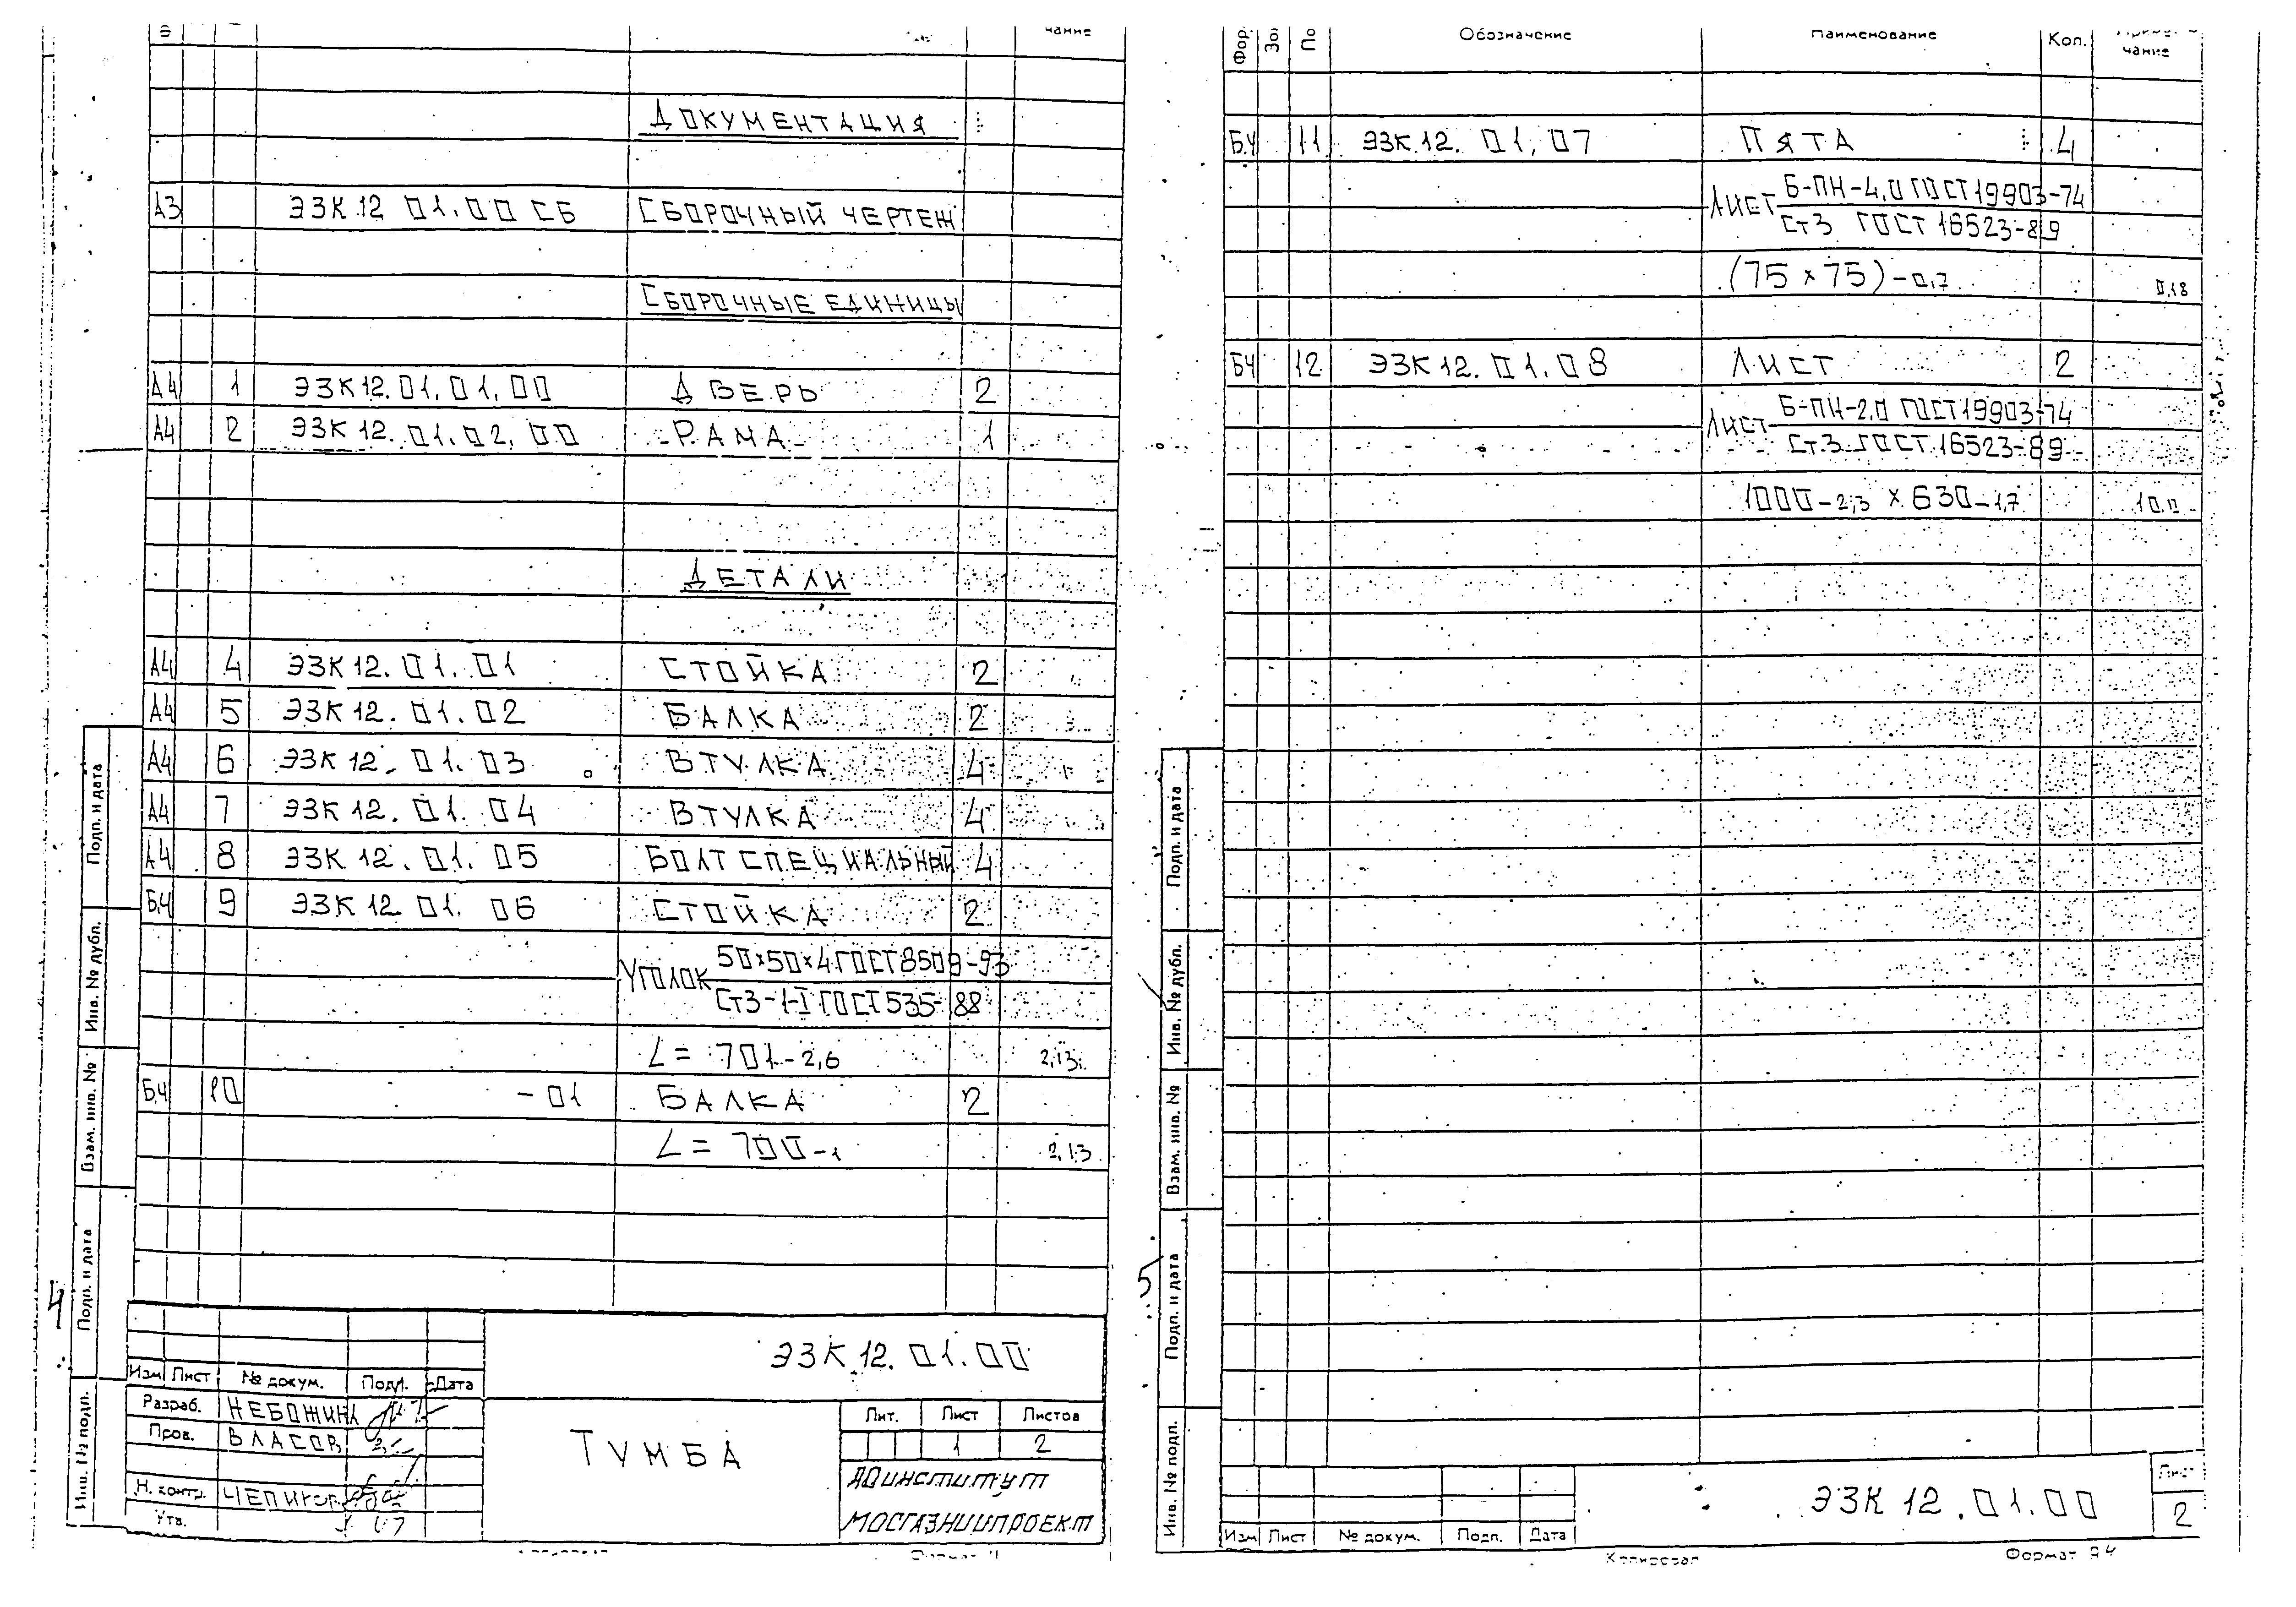 чание
ДОКУМЕНТАЦИЯ
А3 ЭЗК 12 01.00 СБ СБОРОЧНЫЙ ЧЕРТЕЖ
СБОРОЧНЫЕ ЕДИНИЦЫ
А4 1 ЭЗК 12.01.01.00 ДВЕРЬ 2
А4 2 ЭЗК 12.01.02.00 РАМА 1
ДЕТАЛИ
А4 4 ЭЗК 12.01.01 СТОЙКА 2
А4 5 ЭЗК 12.01.02 БАЛКА 2
А4 6 ЭЗК 12.01.03 ВТУЛКА 4
А4 7 ЭЗК 12.01.04 ВТУЛКА 4
А4 8 ЭЗК 12.01.05 БОЛТ СПЕЦИАЛЬНЫЙ 4
Б4 9 ЭЗК 12 01.06 СТОЙКА 2
УГОЛОК 50х50х4 ГОСТ 8509-93
Ст3-1-I ГОСТ 535-88
L= 701-2,6 2,13
Б4 10 -01 БАЛКА 2
L= 700-1 2,13
Подп. и дата
Инв. № дубл.
Взам. инв. №
Подп. и дата
Инв. № подл.
4
ЭЗК 12.01.00
Изм Лист № докум. Подп. Дата
Разраб. НЕБОЖИН
Пров. ВЛАСОВ
Н. контр.
Утв.
ТУМБА
Лит. Лист Листов
1 2
АО институт
МОСГАЗНИИПРОЕКТ
Фор. Зо По Обозначение Наименование Кол.
чание
Б4 11 ЭЗК 12.01.07 ПЯТА 4
ЛИСТ Б-ПН-4,0 ГОСТ 19903-74
Ст3 ГОСТ 16523-89
(75 х 75)-0,7 0,18
Б4 12 ЭЗК 12.01.08 ЛИСТ 2
ЛИСТ Б-ПН-2,0 ГОСТ 19903-74
Ст3 ГОСТ 16523-89
1000-2,3 х 630-1,7
Подп. и дата
Инв. № дубл.
Взам. инв. №
Подп. и дата
Инв. № подл.
5
Изм Лист № докум. Подп. Дата
ЭЗК 12.01.00
Лист
2
Копировал Формат А4